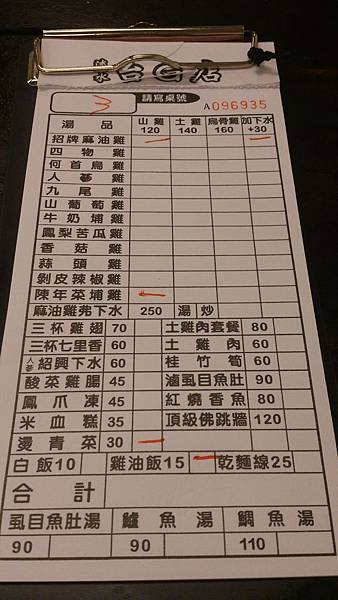 淡水 台G店
3 請寫桌號 A096935
湯品 山雞 120 土雞 140 烏骨雞 160 加下水 +30
招牌麻油雞
四物雞
何首烏雞
人蔘雞
九尾雞
山葡萄雞
牛奶埔雞
鳳梨苦瓜雞
香菇雞
蒜頭雞
剝皮辣椒雞
陳年菜埔雞
麻油雞弗下水 250 湯 炒
三杯雞翅 70 土雞肉套餐 80
三杯七里香 60 土雞肉 60
人蔘紹興下水 60 桂竹筍 60
酸菜雞腸 45 滷虱目魚肚 90
鳳爪凍 45 紅燒香魚 80
米血糕 35 頂級佛跳牆 120
燙青菜 30
白飯10 雞油飯15 乾麵線25
合計
虱目魚肚湯 鱸魚湯 鯛魚湯
90 90 110